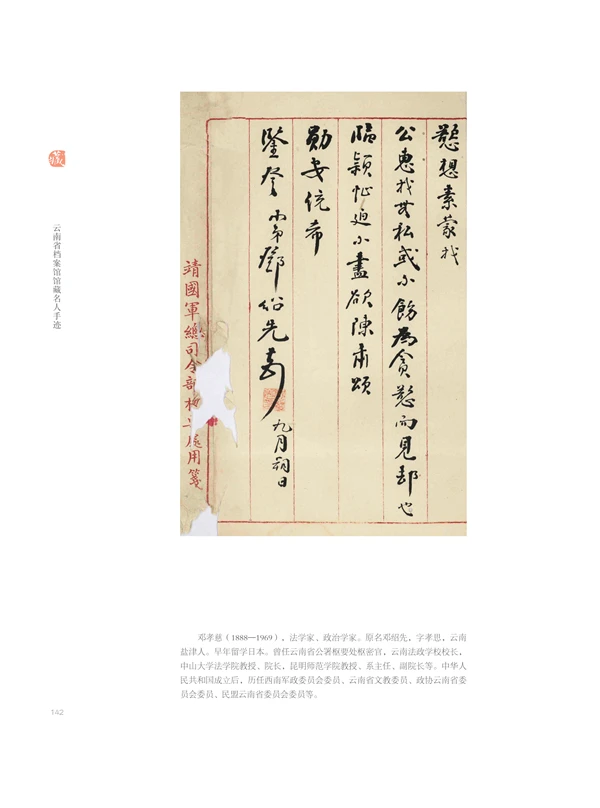 懿想素蒙找
公惠找其私或小飭為貪懿而見却也
臨穎忙迫不盡欲陳肅頌
勛安統希
鑒詧 小弟鄧紹先
九月朔日
靖國軍總司令部
處用箋
藏
云南省档案馆馆藏名人手迹
邓孝慈（1888—1969），法学家、政治学家。原名邓绍先，字孝思，云南
盐津人。早年留学日本。曾任云南省公署枢要处枢密官，云南法政学校校长，
中山大学法学院教授、院长，昆明师范学院教授、系主任、副院长等。中华人
民共和国成立后，历任西南军政委员会委员、云南省文教委员、政协云南省委
员会委员、民盟云南省委员会委员等。
142